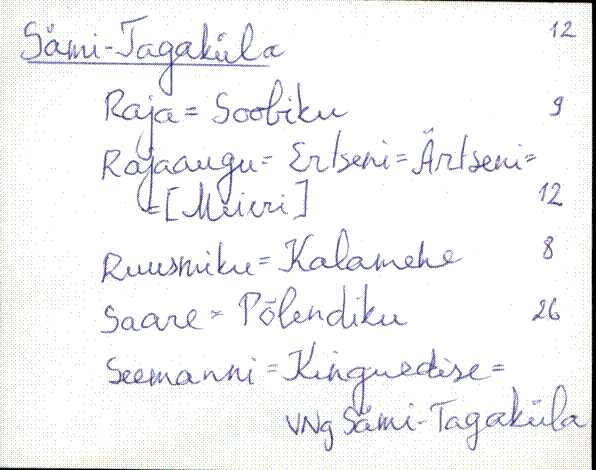 Sämi-Tagaküla 12
Raja = Soobiku 9
Rajaaugu = Ertseni = Ärtseni =
= [Meieri] 12
Ruusmiku = Kalamehe 8
Saare = Põlendiku 26
Seemanni = Kinguedise =
VNg Sämi-Tagaküla